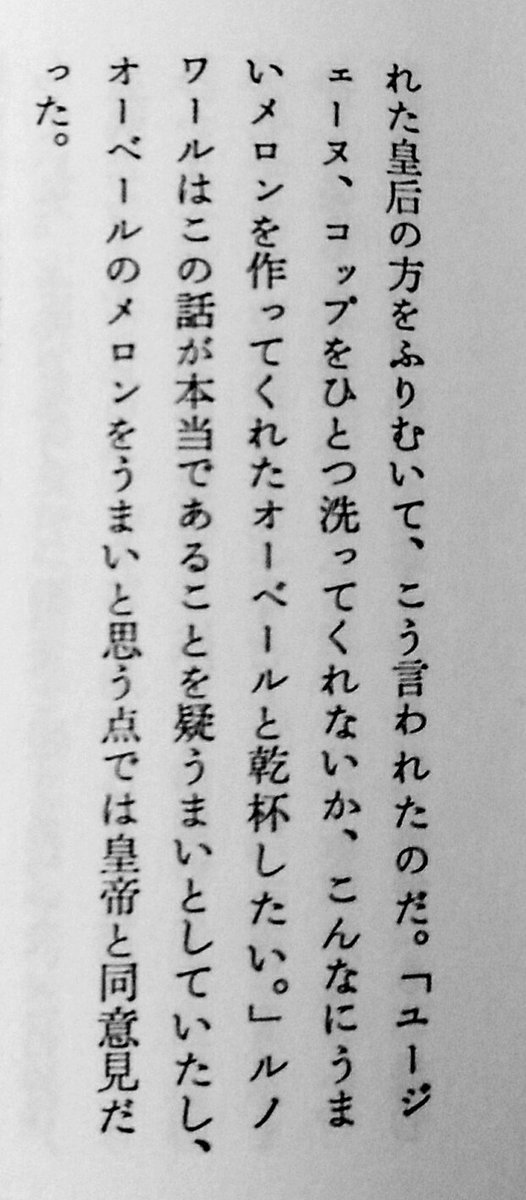 れた皇后の方をふりむいて、こう言われたのだ。「ユージ
ェーヌ、コップをひとつ洗ってくれないか、こんなにうま
いメロンを作ってくれたオーベールと乾杯したい。」ルノ
ワールはこの話が本当であることを疑うまいとしていたし、
オーベールのメロンをうまいと思う点では皇帝と同意見だ
った。